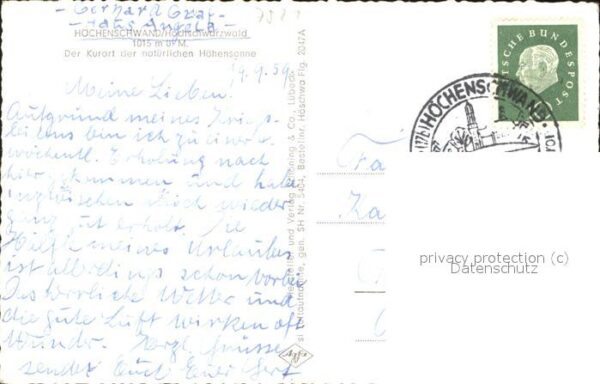 Gerhard Graf
Haus Angela
HÖCHENSCHWAND/Hochschwarzwald
1015 m ü. M.
Der Kurort der natürlichen Höhensonne
19.9.59
Meine Lieben!
Aufgrund meines Kriegs-
leidens bin ich zu einer 4
wöchentl. Erholung nach
hier gekommen und habe
inzwischen mich wieder
ganz gut erholt. Die
Hälfte meines Urlaubes
ist allerdings schon vorbei
Das herrliche Wetter und
die gute Luft wirken oft
Wunder. Herzl. Grüsse
sendet Euch Euer Gert
Hersteller und Verlag & Co., Lübeck
gen. SH Nr. 5404, Bestellnr. Höschwa Flg. 2047A
Agfa
DEUTSCHE BUNDESPOST
HÖCHENSCHWAND
Fa
privacy protection (c)
Datenschutz